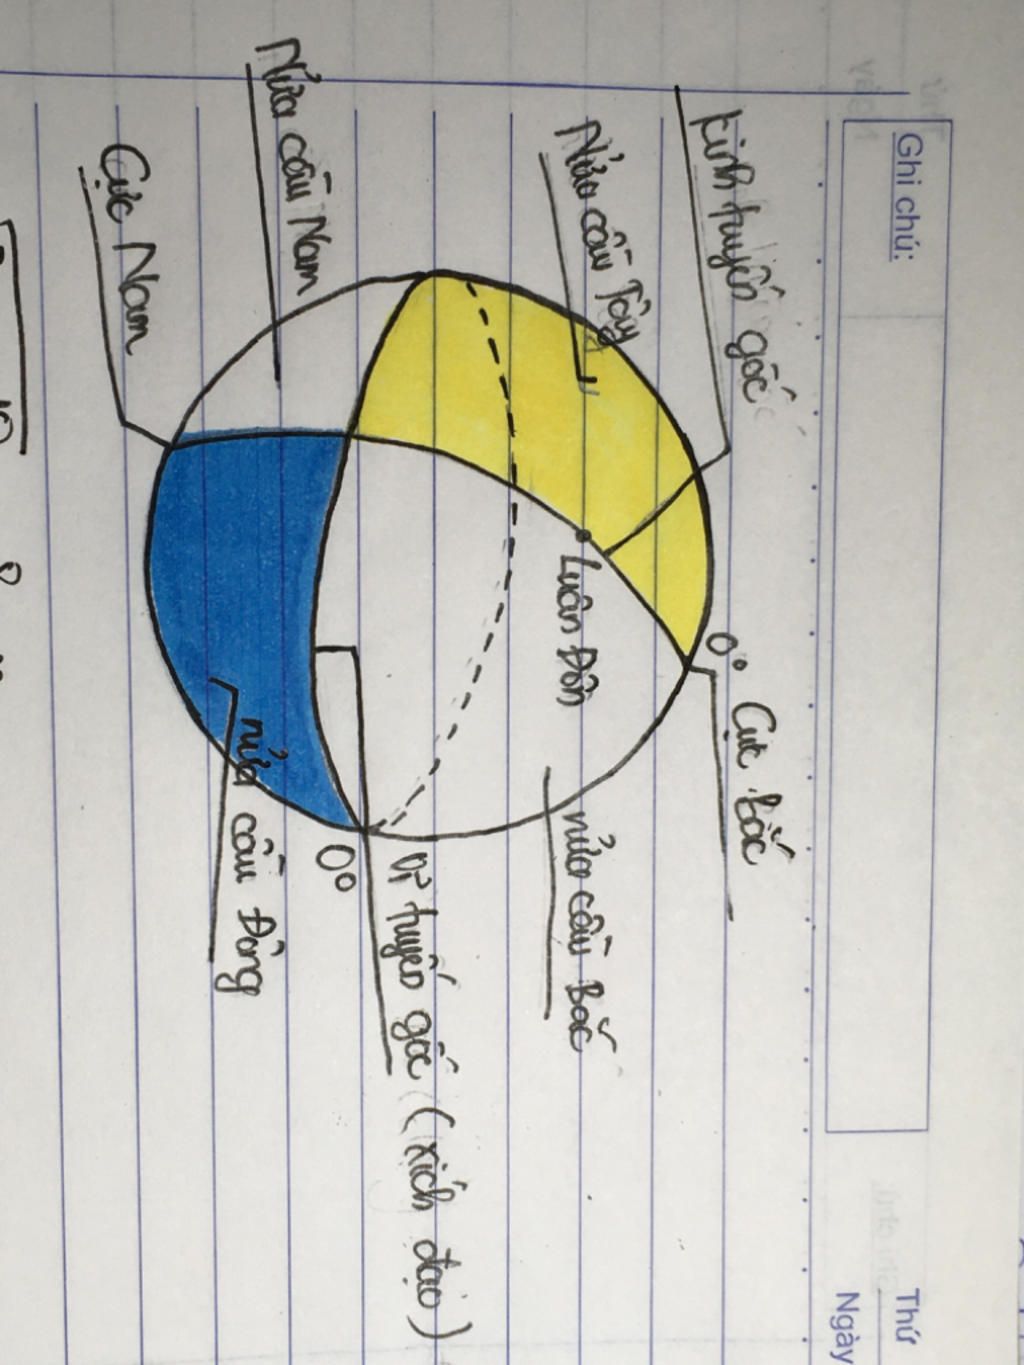 Thứ
Ngày
Ghi chú:
Kinh tuyến gốc
0° Cực bắc
Nửa cầu Tây
Luân Đôn
nửa cầu Bắc
Vĩ tuyến gốc (xích đạo)
0°
Nửa cầu Nam
nửa cầu Đông
Cực Nam